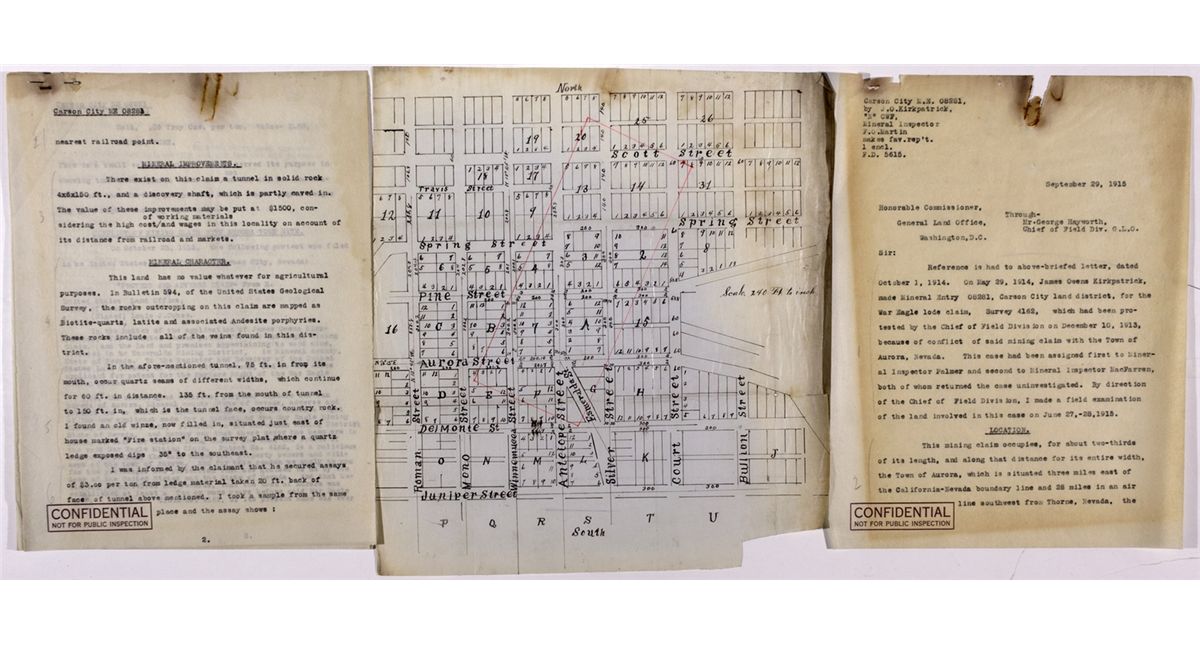 Carson City ME 08281
nearest railroad point.
MINERAL IMPROVEMENTS.
There exist on this claim a tunnel in solid rock
4x6x150 ft., and a discovery shaft, which is partly caved in.
The value of these improvements may be put at $1500, con-
of working materials
sidering the high cost/and wages in this locality on account of
its distance from railroad and markets.
MINERAL CHARACTER.
This land has no value whatever for agricultural
purposes. In Bulletin 594, of the United States Geological
Survey, the rocks outcropping on this claim are mapped as
Biotite-quartz, latite and associated Andesite porphyries.
These rocks include all of the veins found in this dis-
trict.
In the afore-mentioned tunnel, 75 ft. in from its
mouth, occur quartz seams of different widths, which continue
for 60 ft. in distance. 135 ft. from the mouth of tunnel
to 150 ft. in, which is the tunnel face, occurs country rock.
I found an old winze, now filled in, situated just east of
house marked "Fire station" on the survey plat, where a quartz
ledge exposed dips 35° to the southeast.
I was informed by the claimant that he secured assays
of $3.00 per ton from ledge material taken 20 ft. back of
face of tunnel above mentioned. I took a sample from the same
place and the assay shows :
CONFIDENTIAL
NOT FOR PUBLIC INSPECTION
2.
North
25 26
19 20
Scott Street
18 17 13 14 31
Travis Street
12 11 10 9
Spring Street
Spring Street
6 5 4 3 2 8
Pine Street
Scale 240 Ft to inch
16 C B 7 A 15
Aurora Street
D E F G H
Esmeralda St
Del Monte St
Roman Street
Mono Street
Winnemucca Street
Antelope Street
Silver Street
Court Street
Bullion Street
O N M L K J
Juniper Street
P Q R S T U
South
Carson City M.E. 08281,
by J.O.Kirkpatrick,
"E" GWF.
Mineral Inspector
F.O.Martin
makes fav.rep't.
1 encl.
F.D. 5615.
September 29, 1915
Honorable Commissioner,
General Land Office,
Washington,D.C.
Through-
Mr.George Hayworth,
Chief of Field Div. G.L.O.
Sir:
Reference is had to above-briefed letter, dated
October 1, 1914. On May 29, 1914, James Owens Kirkpatrick,
made Mineral Entry 08281, Carson City land district, for the
War Eagle lode claim, Survey 4162, which had been pro-
tested by the Chief of Field Division on December 10, 1913,
because of conflict of said mining claim with the Town of
Aurora, Nevada. This case had been assigned first to Miner-
al Inspector Palmer and second to Mineral Inspector MacFarren,
both of whom returned the case uninvestigated. By direction
of the Chief of Field Division, I made a field examination
of the land involved in this case on June 27-28,1915.
LOCATION.
This mining claim occupies, for about two-thirds
of its length, and along that distance for its entire width,
the Town of Aurora, which is situated three miles east of
the California-Nevada boundary line and 28 miles in an air
line southwest from Thorne, Nevada, the
CONFIDENTIAL
NOT FOR PUBLIC INSPECTION